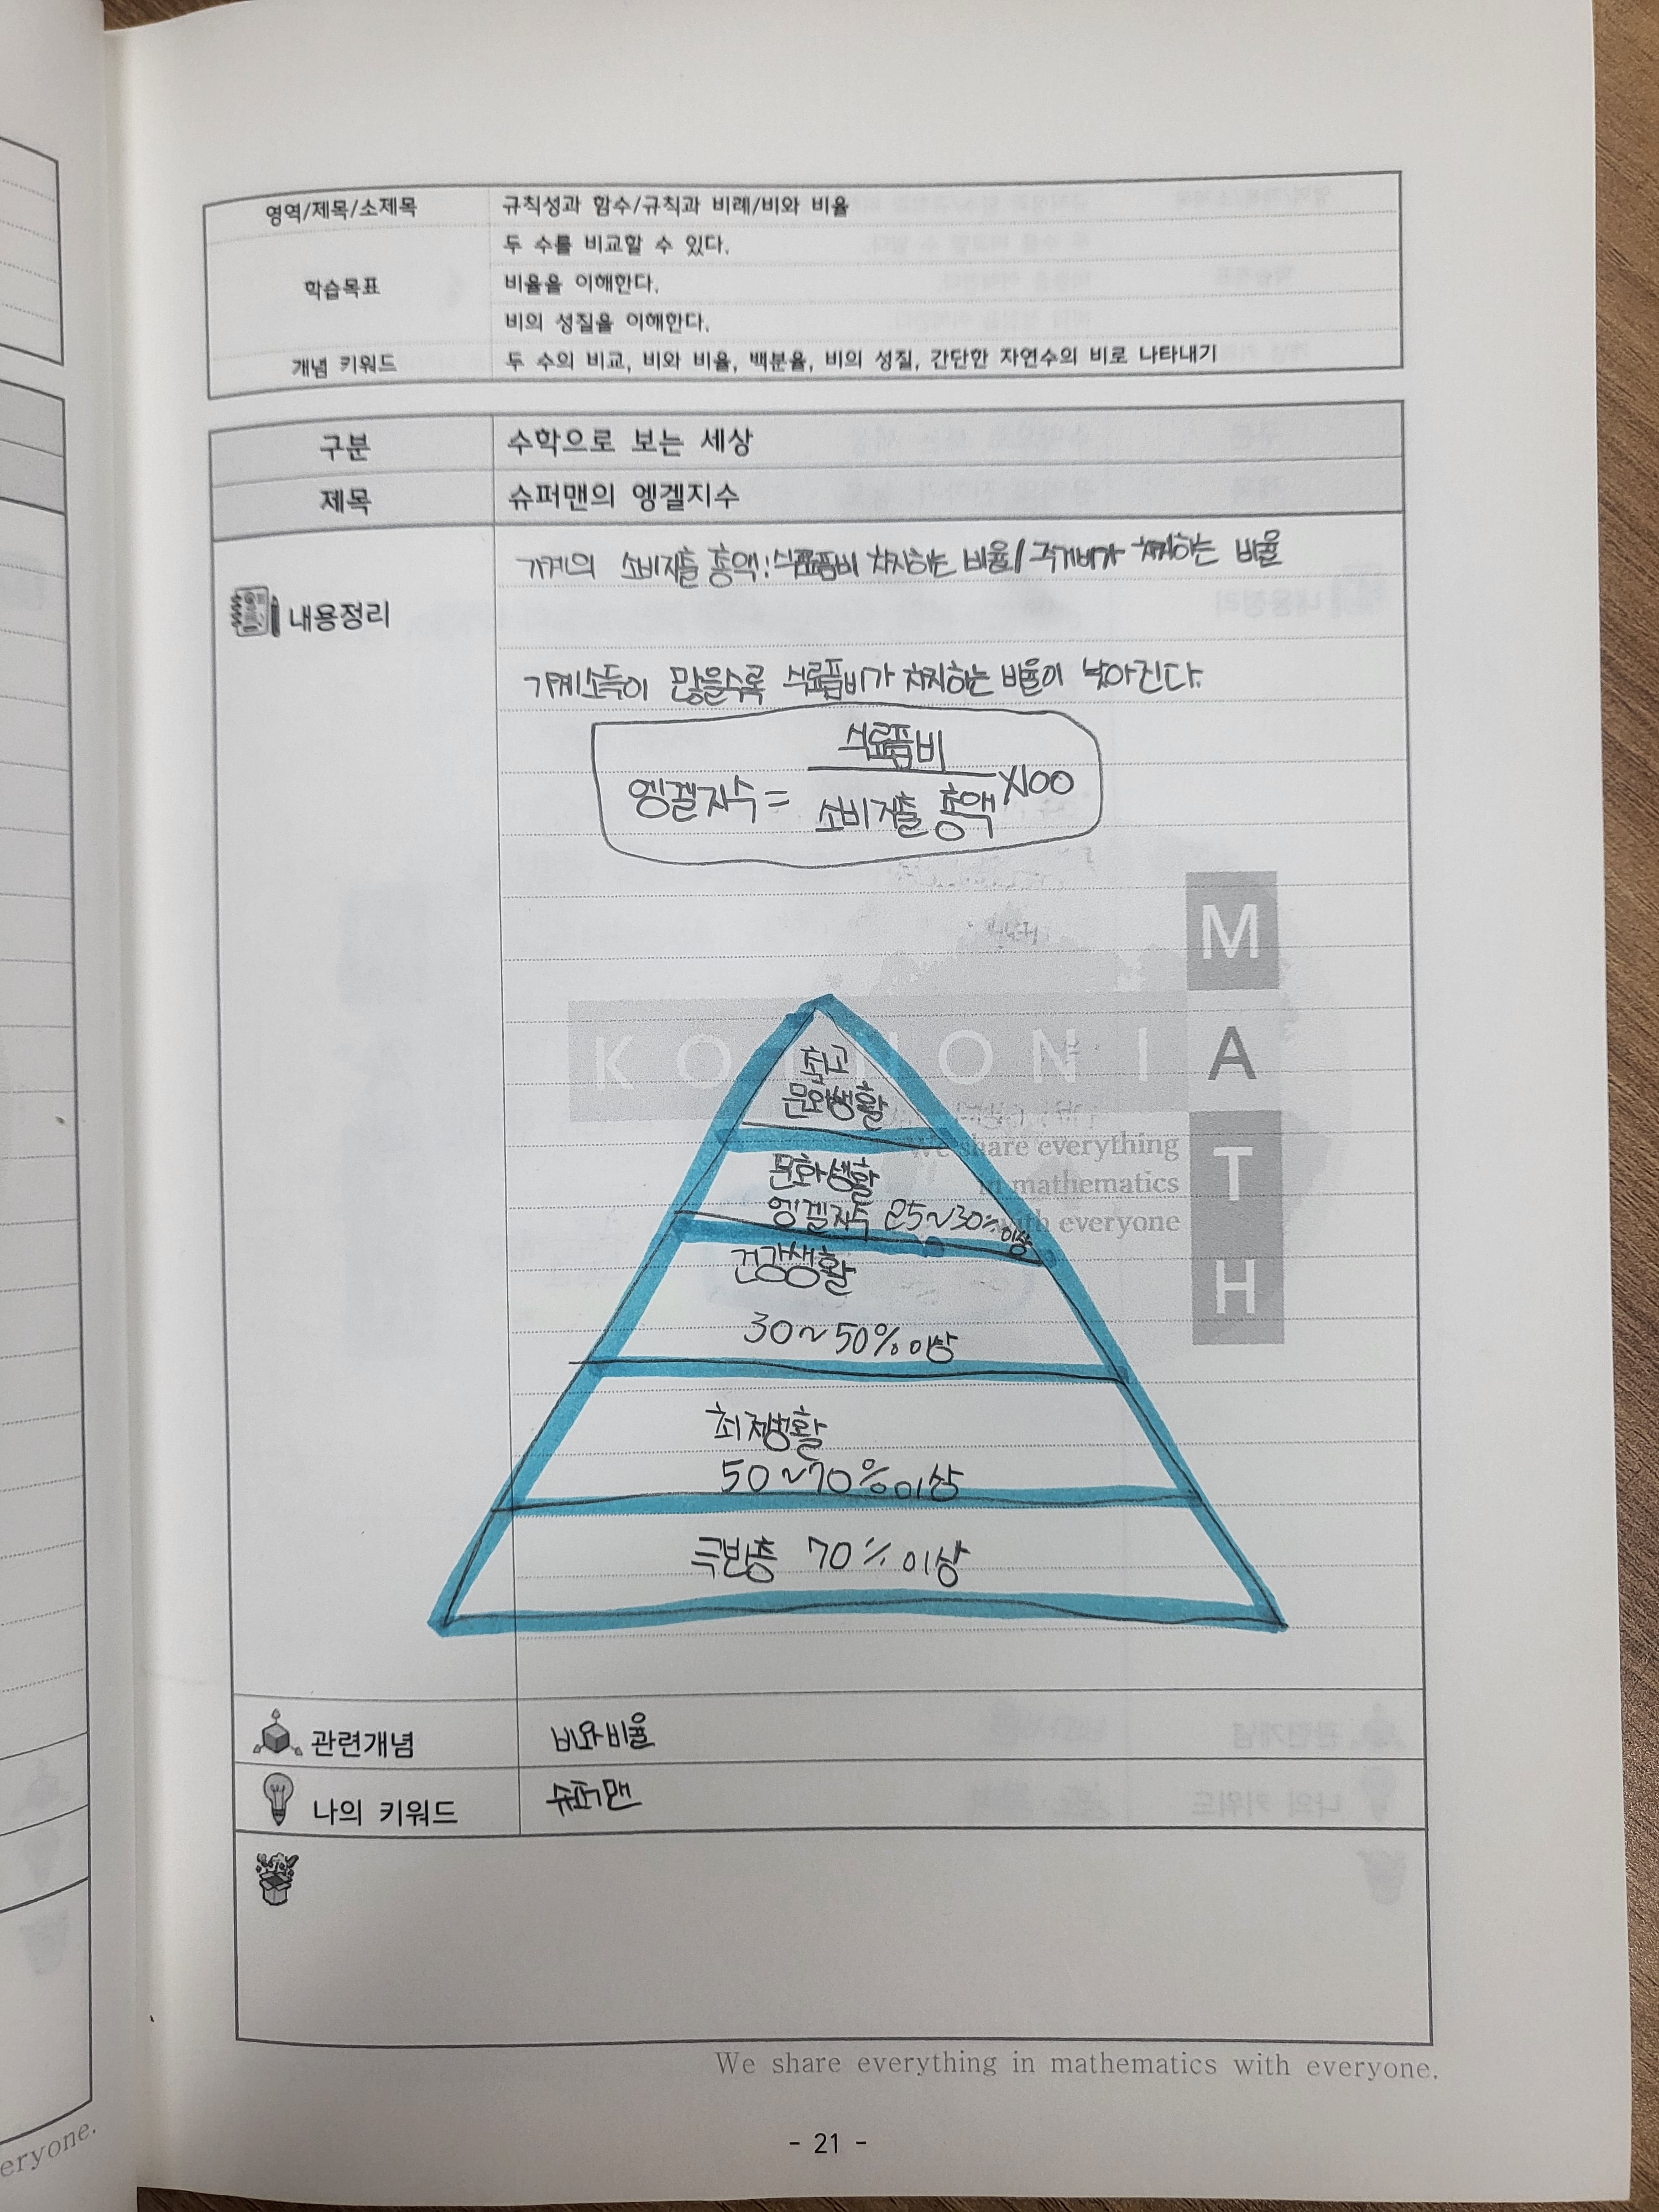 영역/제목/소제목 규칙성과 함수/규칙과 비례/비와 비율
학습목표
두 수를 비교할 수 있다.
비율을 이해한다.
비의 성질을 이해한다.
개념 키워드 두 수의 비교, 비와 비율, 백분율, 비의 성질, 간단한 자연수의 비로 나타내기
구분 수학으로 보는 세상
제목 슈퍼맨의 엥겔지수
내용정리
가계의 소비지출 총액:식료품비 차지하는 비율/주거비가 차지하는 비율
가계소득이 많을수록 식료품비가 차지하는 비율이 낮아진다.
식료품비
엥겔지수= ×100
소비지출 총액
M
KOINONIA
T
H
We share everything
in mathematics
with everyone
최고
문화생활
문화생활
엥겔지수 25~30% 이상
건강생활
30~50% 이상
최저생활
50~70% 이상
극빈층 70% 이상
관련개념 비와 비율
나의 키워드 슈퍼맨
We share everything in mathematics with everyone.
- 21 -
eryone.